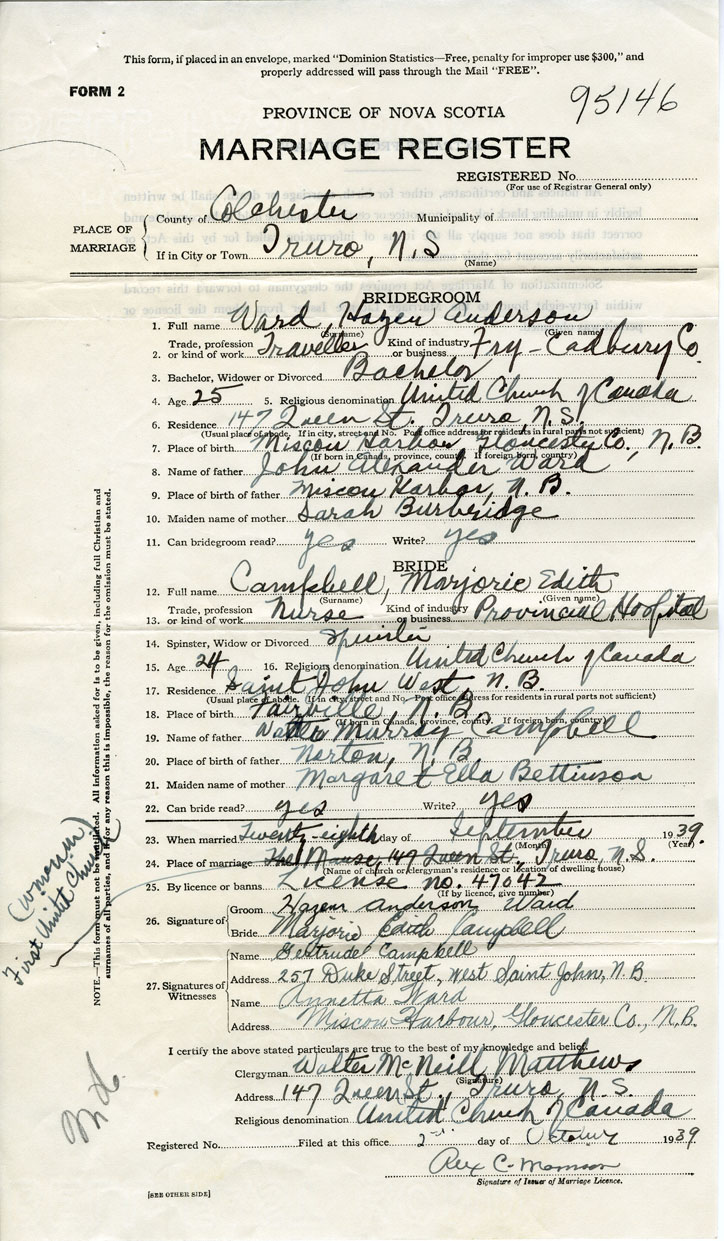 This form, if placed in an envelope, marked "Dominion Statistics—Free, penalty for improper use $300," and
properly addressed will pass through the Mail "FREE".
FORM 2
95146
PROVINCE OF NOVA SCOTIA
MARRIAGE REGISTER
REGISTERED No.
(For use of Registrar General only)
PLACE OF MARRIAGE
County of Colchester Municipality of
If in City or Town Truro, N.S
(Name)
BRIDEGROOM
1. Full name Ward, Hazen Anderson
(Surname) (Given name)
2. Trade, profession or kind of work Traveller Kind of industry or business Fry-Cadbury Co
3. Bachelor, Widower or Divorced Bachelor
4. Age 25 5. Religious denomination United Church of Canada
6. Residence 147 Queen St. Truro, N.S.
(Usual place of abode. If in city, street and No. Post office address for residents in rural parts not sufficient)
7. Place of birth Miscou Harbour Co., N.B.
(If born in Canada, province, county. If foreign born, country)
8. Name of father John Alexander Ward
9. Place of birth of father Miscou Harbor, N.B.
10. Maiden name of mother Sarah Burbridge
11. Can bridegroom read? yes Write? yes
BRIDE
12. Full name Campbell, Marjorie Edith
(Surname) (Given name)
13. Trade, profession or kind of work Nurse Kind of industry or business Provincial Hospital
14. Spinster, Widow or Divorced Spinster
15. Age 24 16. Religious denomination United Church of Canada
17. Residence Saint John West, N.B.
(Usual place of abode. If in city, street and No. Post office address for residents in rural parts not sufficient)
18. Place of birth Fairville, N.B
(If born in Canada, province, county. If foreign born, country)
19. Name of father Murray Campbell
20. Place of birth of father Norton, N.B
21. Maiden name of mother Margaret Ella Bettinson
22. Can bride read? yes Write? yes
23. When married Twenty-eighth day of September 1939.
(Month) (Year)
24. Place of marriage The Manse, 147 Queen St., Truro, N.S.
(Name of church or clergyman's residence or location of dwelling house)
25. By licence or banns License no. 47042
(If by licence, give number)
26. Signature of
Groom Hazen Anderson Ward
Bride Marjorie Edith Campbell
27. Signatures of Witnesses
Name Gertrude Campbell
Address 257 Duke Street, West Saint John, N.B.
Name Annetta Ward
Address Miscou Harbour, Gloucester Co., N.B.
I certify the above stated particulars are true to the best of my knowledge and belief.
Clergyman Walter McNeill Matthews
(Signature)
Address 147 Queen St., Truro, N.S.
Religious denomination United Church of Canada
Registered No. Filed at this office 2nd day of October 1939
Rex C.
Signature of Issuer of Marriage Licence.
[SEE OTHER SIDE]
NOTE.—This form must not be mutilated. All information asked for is to be given, including full Christian and
surnames of all parties, and if for any reason this is impossible, the reason for the omission must be stated.
First United Church